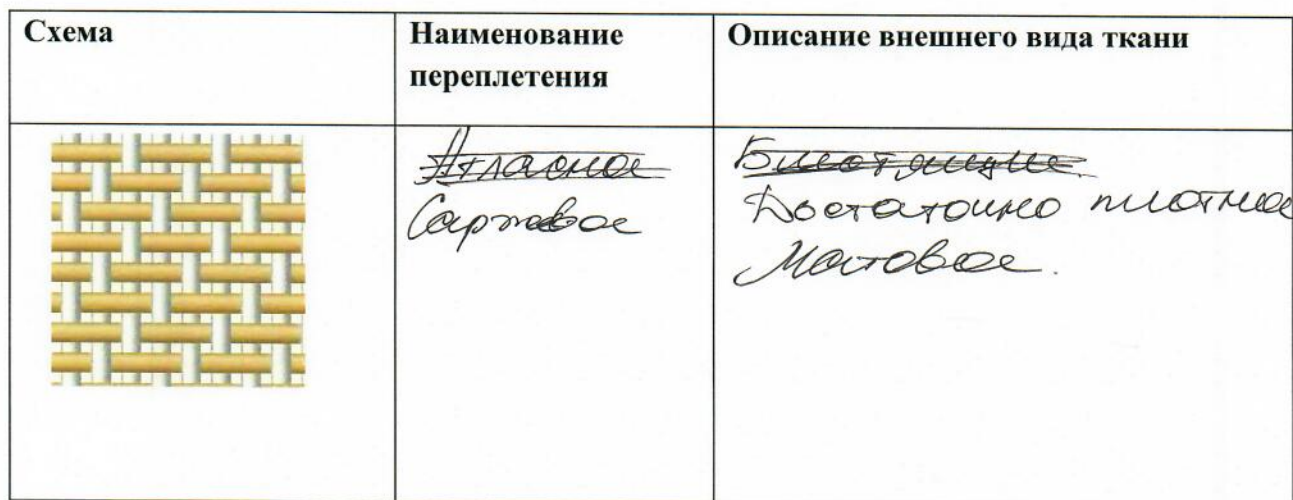 Схема
Наименование переплетения
Описание внешнего вида ткани
Атласное
Саржевое
Блестящие
Достаточно плотное
Матовое.